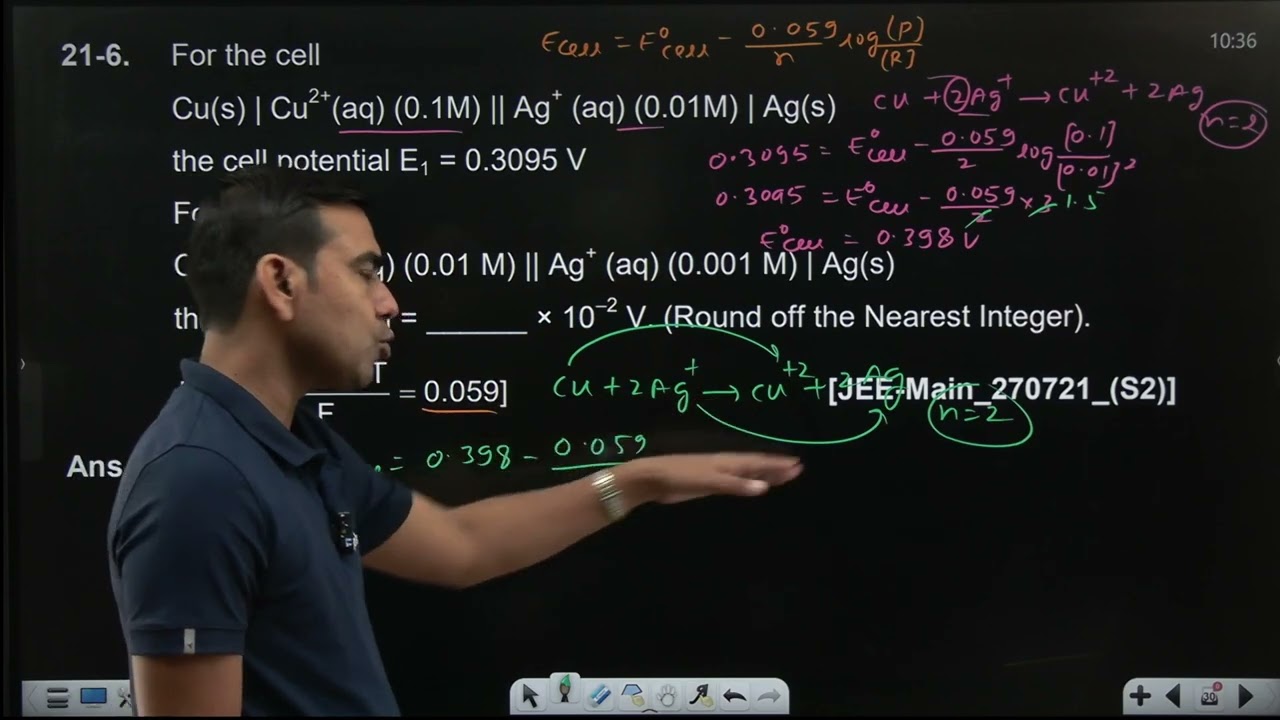 10:36
21-6. For the cell
Cu(s) | Cu²⁺(aq) (0.1M) || Ag⁺ (aq) (0.01M) | Ag(s)
the cell potential E₁ = 0.3095 V
(0.01 M) || Ag⁺ (aq) (0.001 M) | Ag(s)
= ______ × 10⁻² V. (Round off the Nearest Integer).
F = 0.059]
[JEE-Main_270721_(S2)]
Ans
Ecell = E°cell - 0.059/n log (P)/[R]
Cu + 2Ag⁺ → Cu⁺² + 2Ag
n=2
0.3095 = E°cell - 0.059/2 log [0.1]/[0.01]²
0.3095 = E°cell - 0.059/2 × 3 1.5
E°cell = 0.398 V
Cu + 2Ag⁺ → Cu⁺² + 2Ag
n=2
= 0.398 - 0.059
30